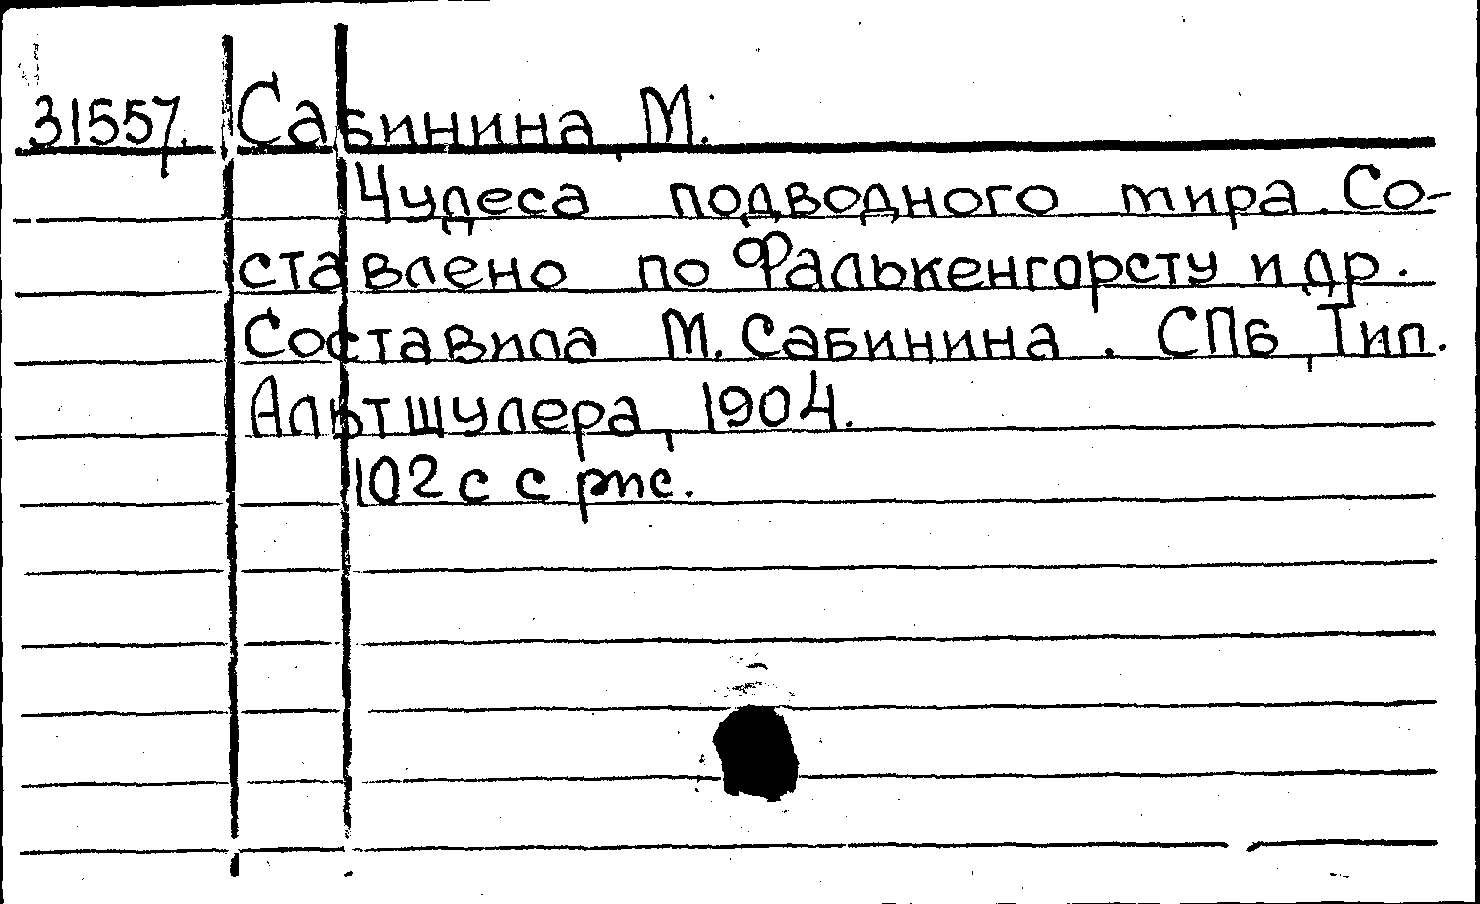 31557. Сабинина, М.
Чудеса подводного мира. Со-
ставлено по Фалькенгорсту и др.
Составила М. Сабинина. СПб, Тип.
Альтшулера, 1904.
102 с с рис.